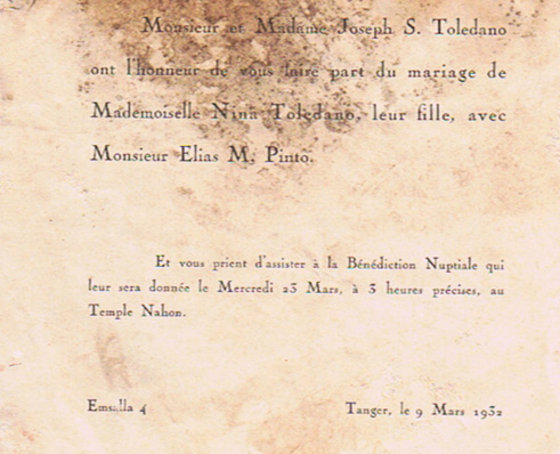 Monsieur et Madame Joseph S. Toledano
ont l'honneur de vous faire part du mariage de
Mademoiselle Nina Toledano, leur fille, avec
Monsieur Elias M. Pinto.
Et vous prient d'assister à la Bénédiction Nuptiale qui
leur sera donnée le Mercredi 23 Mars, à 3 heures précises, au
Temple Nahon.
Emsalla 4
Tanger, le 9 Mars 1932